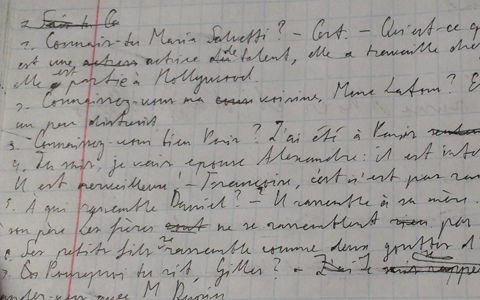 1. Connais-tu Maria Salvatti? - Cert. - Qui est-ce q
est une actrice de talent, elle a travaillé che
elle est partie à Hollywood.
2. Connaissez-vous ma voisine, Mme Lafon? E
un peu distrait
3. Connaissez-vous bien Paris? J'ai été à Paris
4. Tu sais, je vais épouse Alexandre: il est inte
Il est merveilleux! - Françoise, c'est n'est pas
5. A qui ressemble Daniel? - Il ressemble à sa mère.
son père Les frères ne se ressemblent pas
6. Ses petits fils se ressemble comme deux gouttes d
7. Pourquoi tu rit, Gilles? - Je
vous avec M.